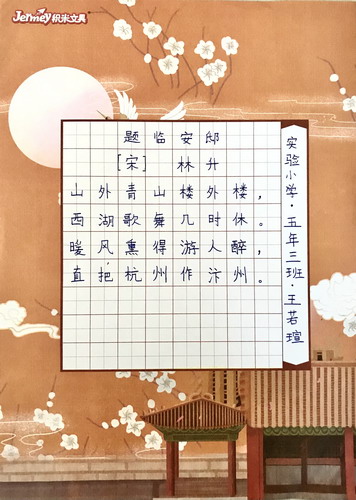 Jermey积米文具
题临安邸
[宋] 林升
山外青山楼外楼，
西湖歌舞几时休。
暖风熏得游人醉，
直把杭州作汴州。
实验小学·五年三班·王若瑄